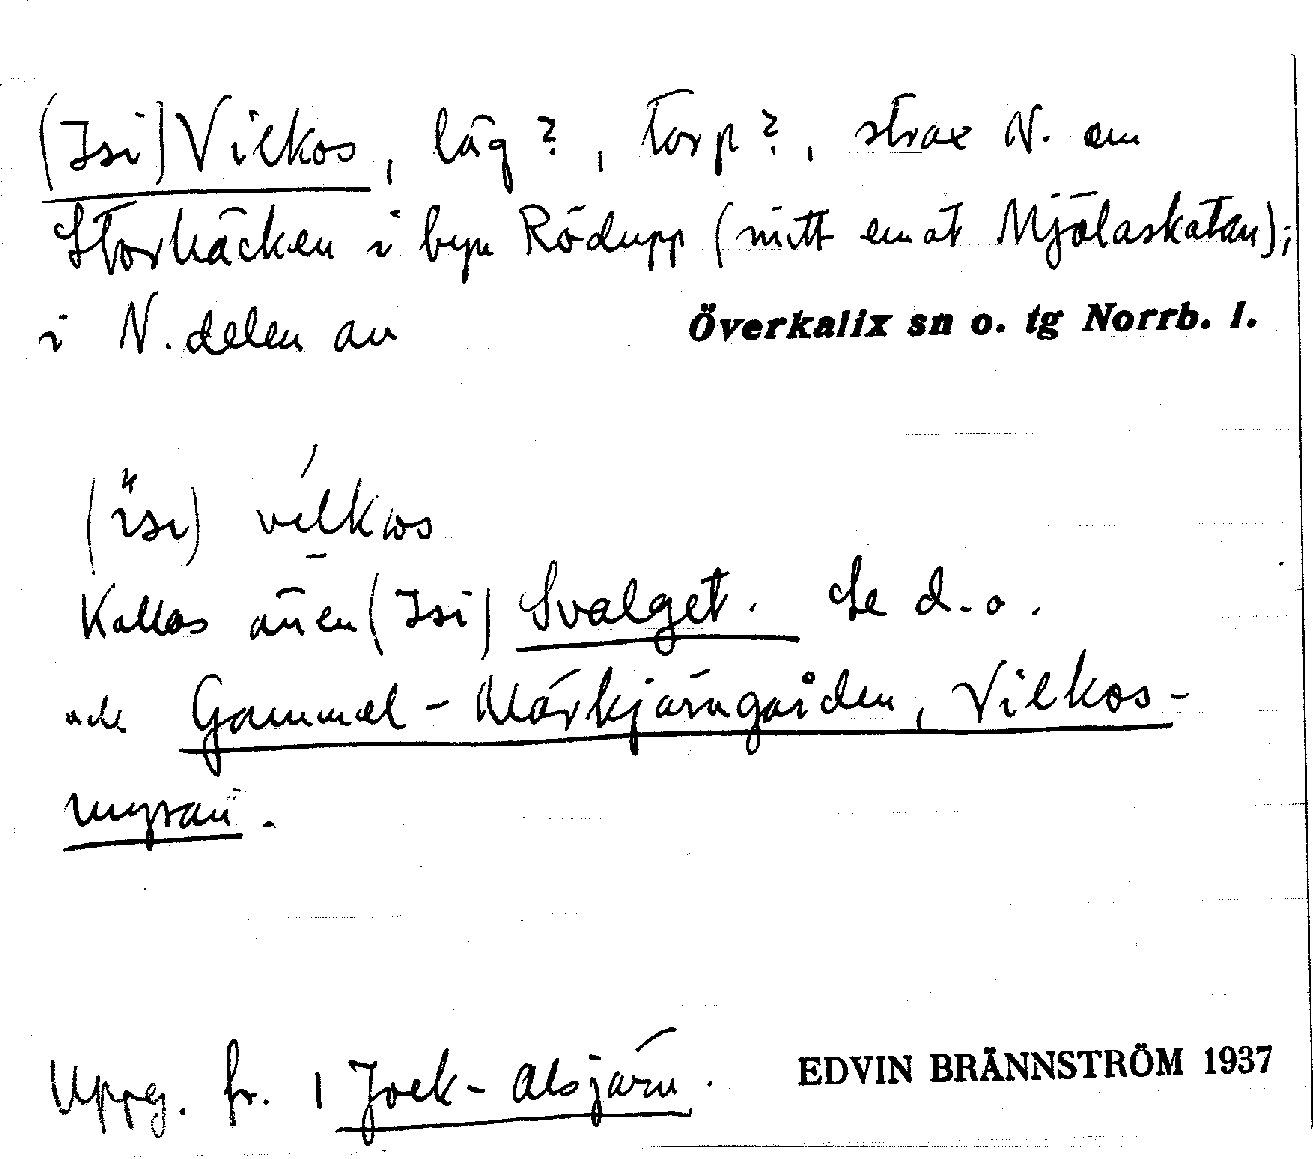 (Isi) Vilkos, läg?, torp?, strax N. om
Storbäcken i byn Rödupp (mitt emot Mjölaskatan);
i N. delen av Överkalix sn o. tg Norrb. l.
(isi) vilkos
Kallas även (Isi) Svalget. Se d. o.
och Gammel-Markjärngården, Vilkos-
myran.
Uppg. fr. 1 Joek-Alsjärn. EDVIN BRÄNNSTRÖM 1937